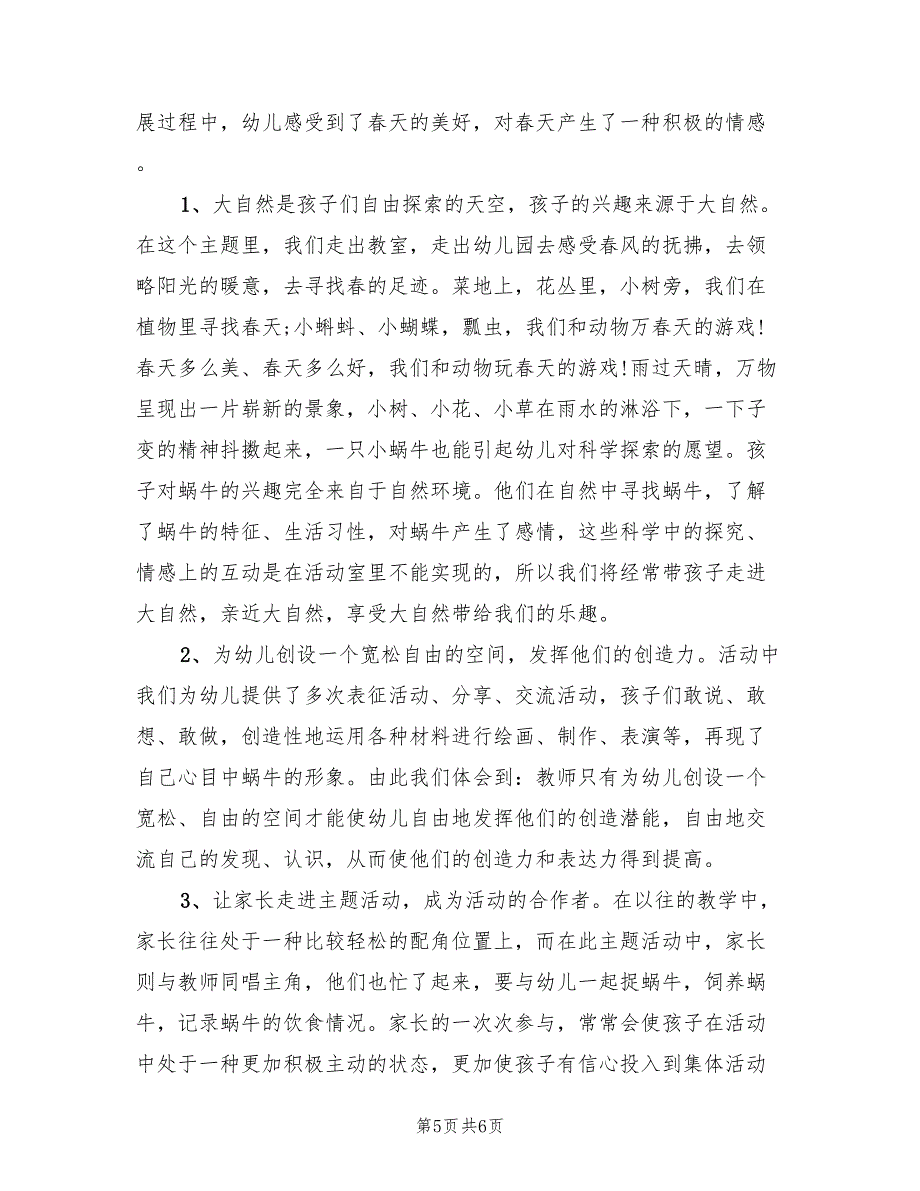 展过程中，幼儿感受到了春天的美好，对春天产生了一种积极的情感
。
1、大自然是孩子们自由探索的天空，孩子的兴趣来源于大自然。
在这个主题里，我们走出教室，走出幼儿园去感受春风的抚拂，去领
略阳光的暖意，去寻找春的足迹。菜地上，花丛里，小树旁，我们在
植物里寻找春天;小蝌蚪、小蝴蝶，瓢虫，我们和动物万春天的游戏!
春天多么美、春天多么好，我们和动物玩春天的游戏!雨过天晴，万物
呈现出一片崭新的景象，小树、小花、小草在雨水的淋浴下，一下子
变的精神抖擞起来，一只小蜗牛也能引起幼儿对科学探索的愿望。孩
子对蜗牛的兴趣完全来自于自然环境。他们在自然中寻找蜗牛，了解
了蜗牛的特征、生活习性，对蜗牛产生了感情，这些科学中的探究、
情感上的互动是在活动室里不能实现的，所以我们将经常带孩子走进
大自然，亲近大自然，享受大自然带给我们的乐趣。
2、为幼儿创设一个宽松自由的空间，发挥他们的创造力。活动中
我们为幼儿提供了多次表征活动、分享、交流活动，孩子们敢说、敢
想、敢做，创造性地运用各种材料进行绘画、制作、表演等，再现了
自己心目中蜗牛的形象。由此我们体会到：教师只有为幼儿创设一个
宽松、自由的空间才能使幼儿自由地发挥他们的创造潜能，自由地交
流自己的发现、认识，从而使他们的创造力和表达力得到提高。
3、让家长走进主题活动，成为活动的合作者。在以往的教学中，
家长往往处于一种比较轻松的配角位置上，而在此主题活动中，家长
则与教师同唱主角，他们也忙了起来，要与幼儿一起捉蜗牛，饲养蜗
牛，记录蜗牛的饮食情况。家长的一次次参与，常常会使孩子在活动
中处于一种更加积极主动的状态，更加使孩子有信心投入到集体活动
第5页 共6页